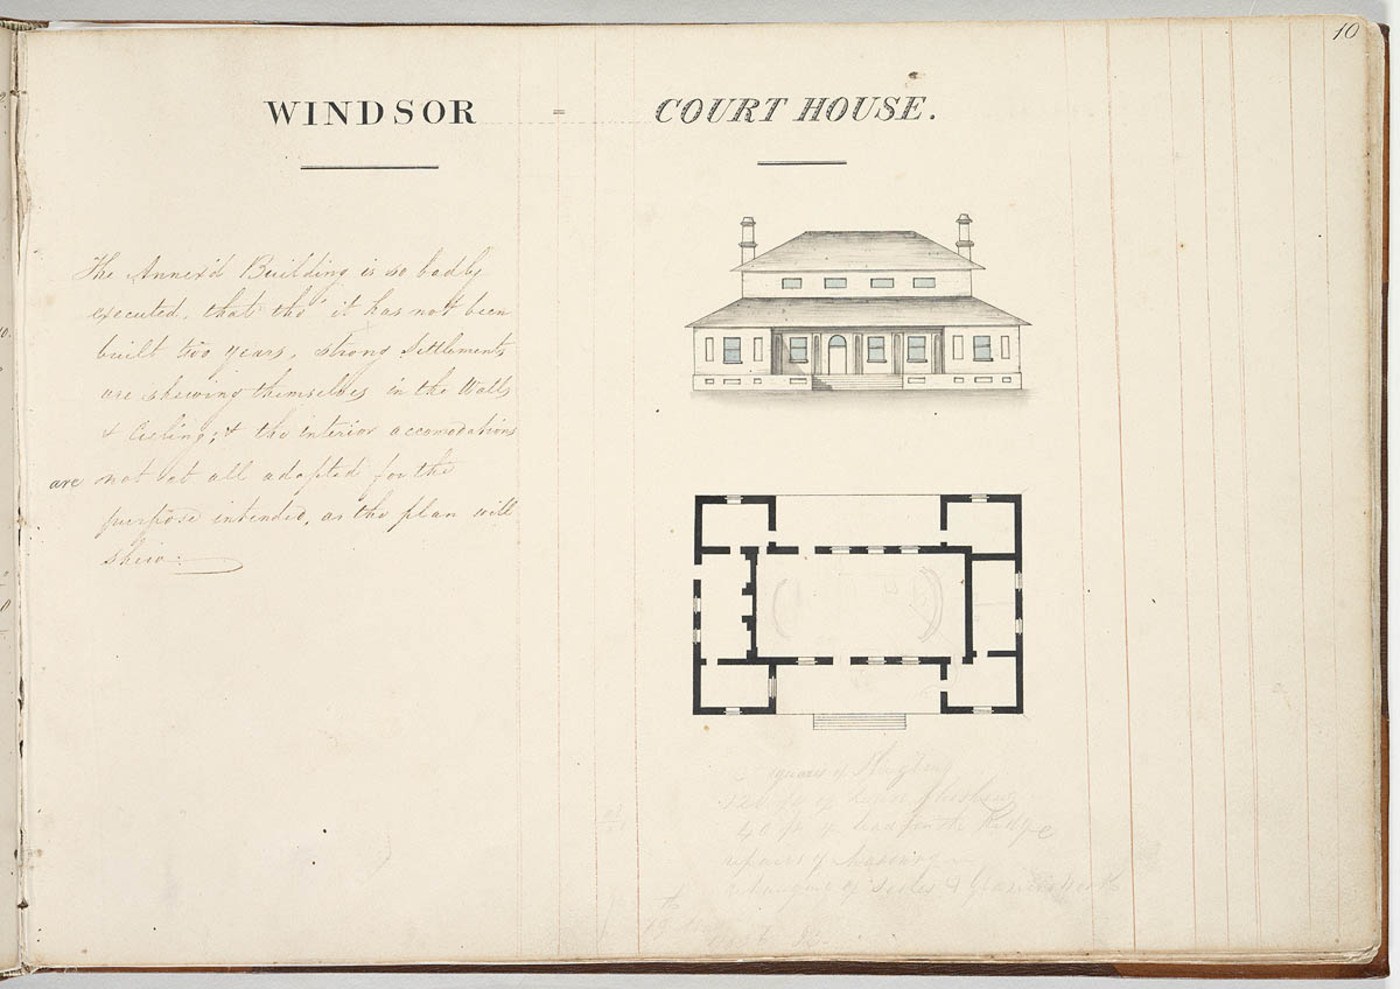 10
WINDSOR = COURT HOUSE.
The Annex'd Building is so badly
executed, that tho' it has not been
built two years, strong Settlements
are shewing themselves in the Walls
& Cieling; & the interior accomodations
are not at all adapted for the
purpose intended, as the plan will
shew.
squares of
of
40 ft of lead for the Ridge
repairs of
rehanging of &